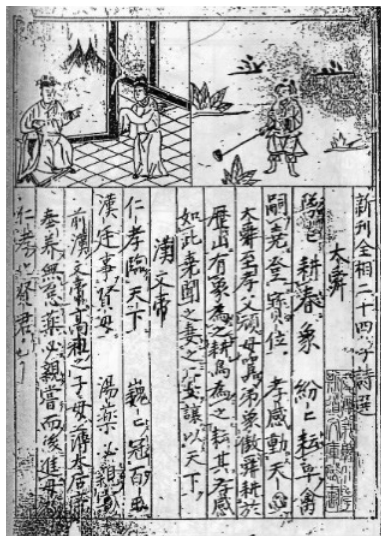 新刊全相二十四孝詩選
大舜
隊〻耕春象　紛〻耘草禽
嗣堯登寶位　孝感動天心
大舜至孝父頑母嚚弟象傲舜耕於
歷山有象為之耕鳥為之耘其孝感
如此堯聞之妻之二女讓以天下
漢文帝
仁孝臨天下　巍〻冠百王
漢廷事賢母　湯藥必親嘗
前漢文帝高祖之子母薄太后
奉養無怠藥必親嘗而後進母
仁孝